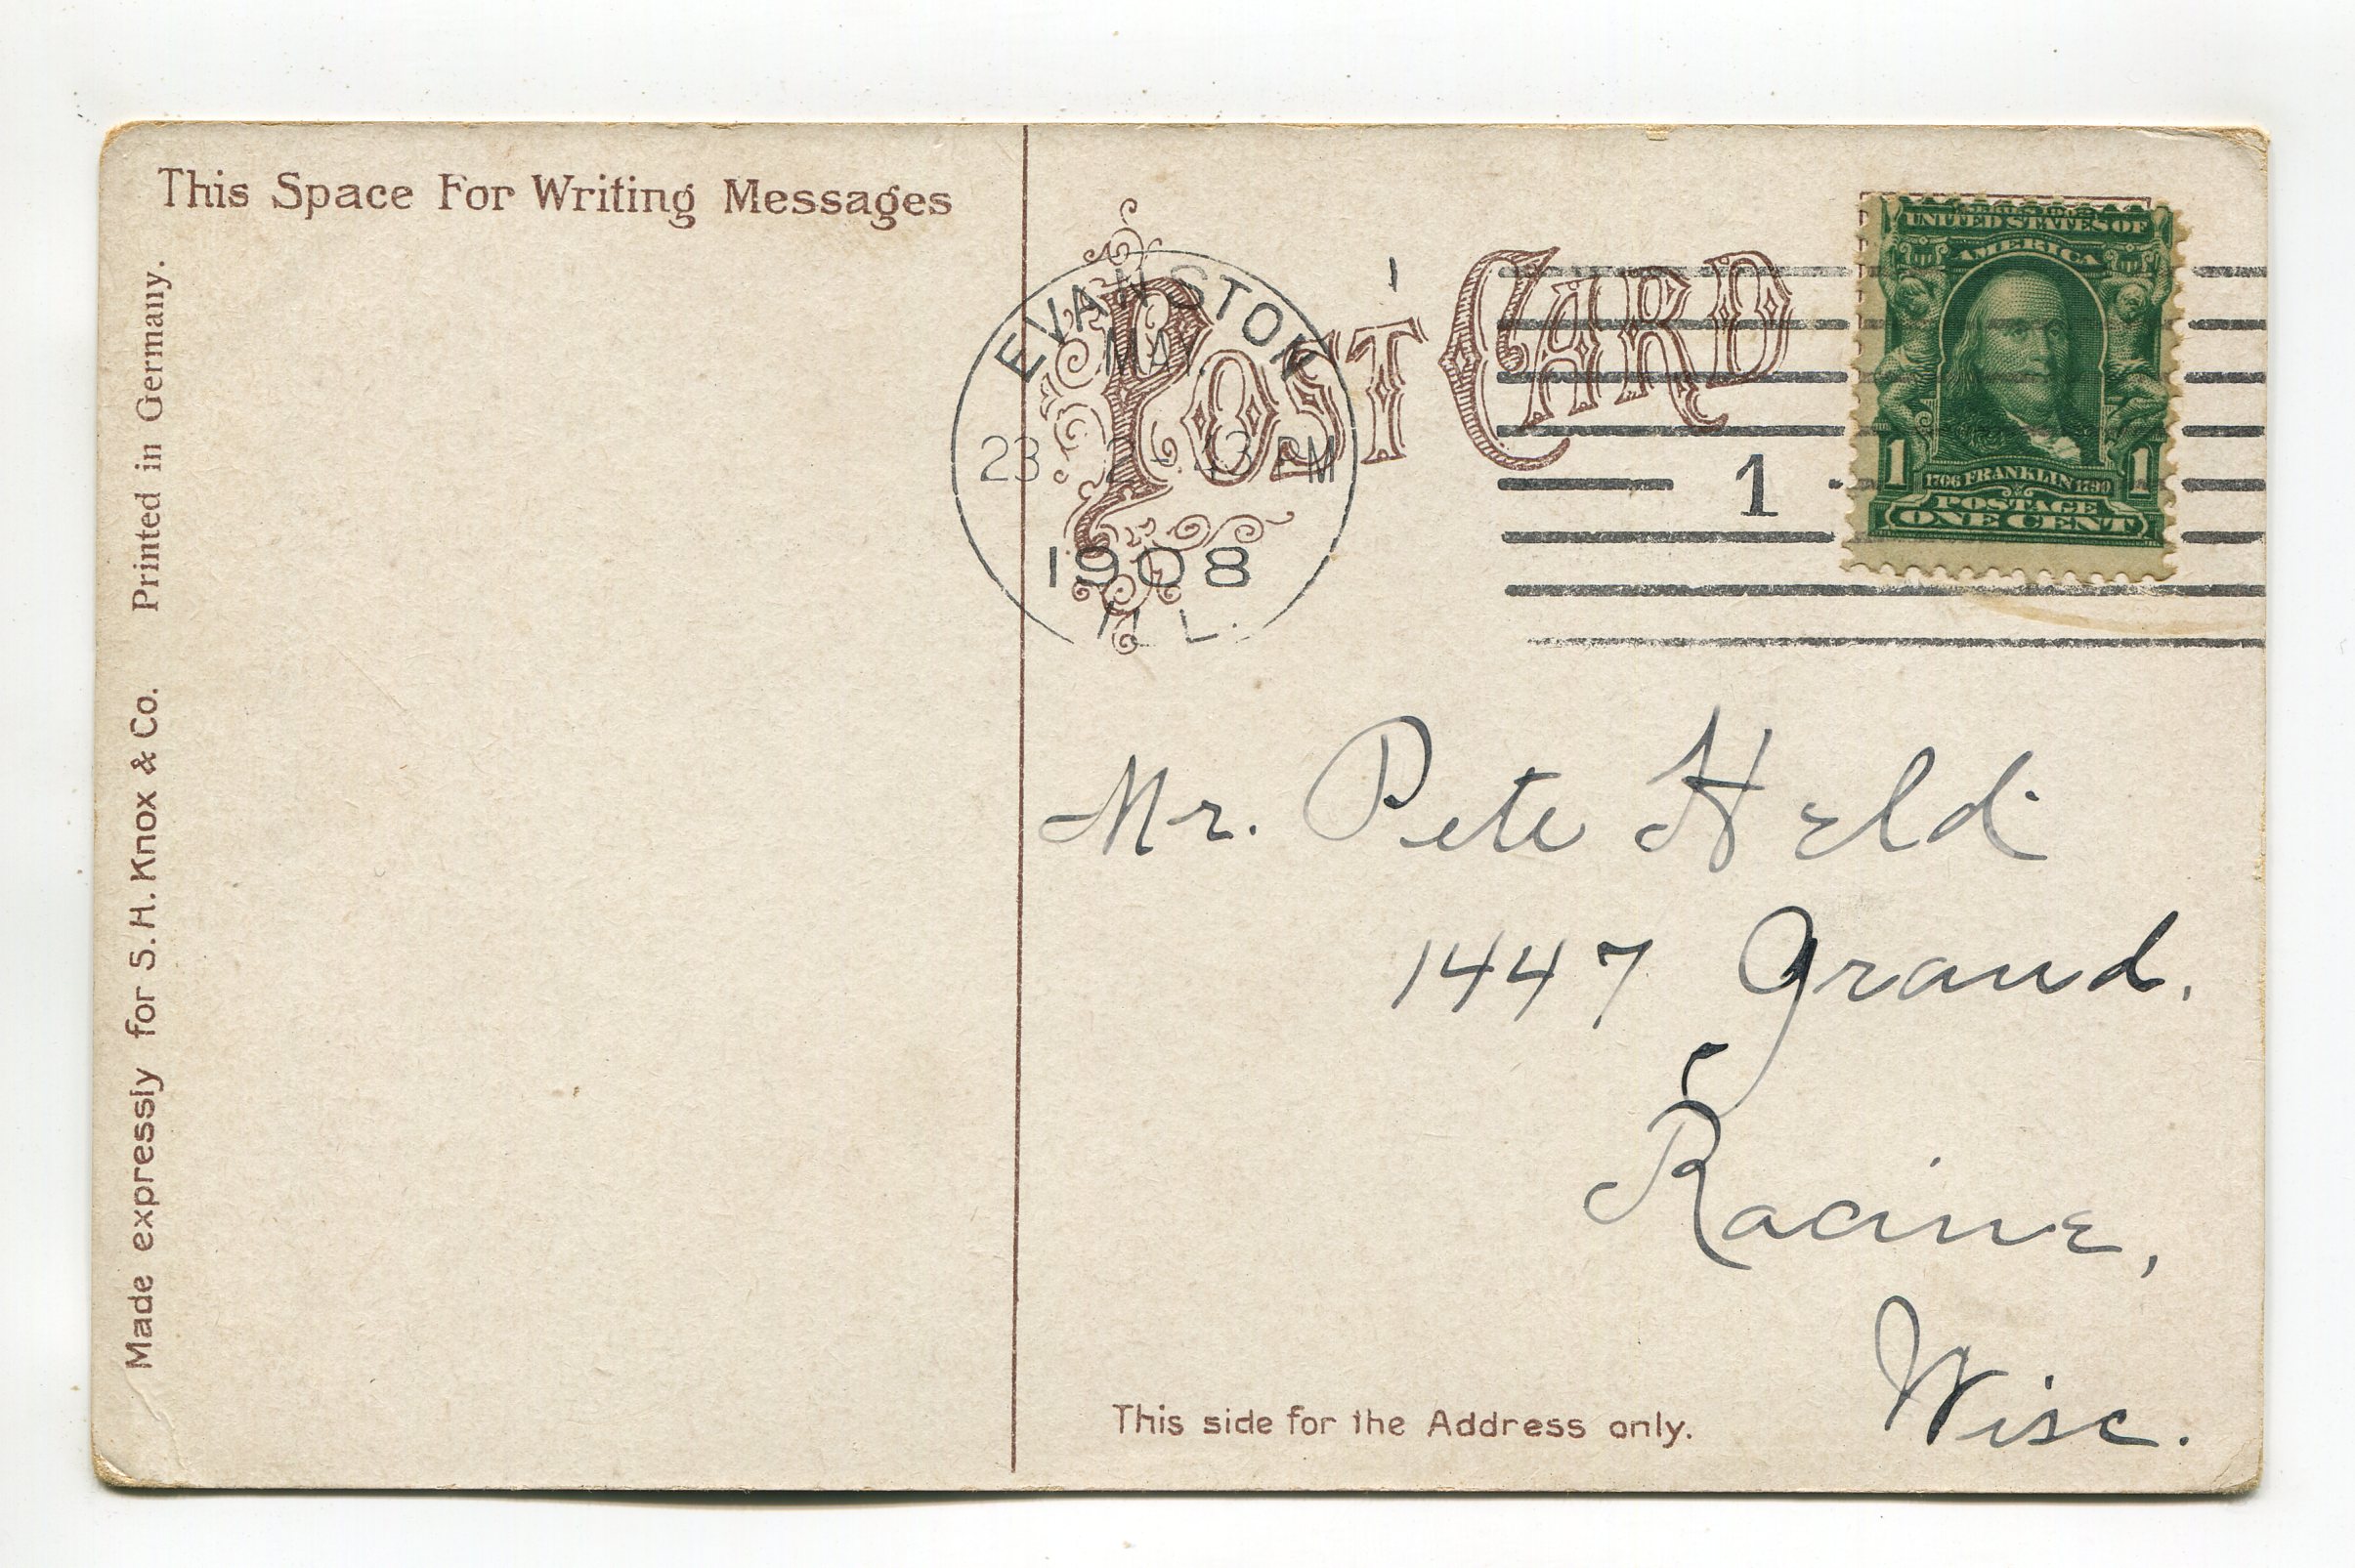 This Space For Writing Messages
Made expressly for S. H. Knox & Co. Printed in Germany.
POST CARD
EVANSTON
MAY
23 2 - PM
1908
ILL.
1
UNITED STATES OF
AMERICA
1 1
1706 FRANKLIN 1790
POSTAGE
ONE CENT
Mr. Pete Held
1447 Grand.
Racine,
Wisc.
This side for the Address only.